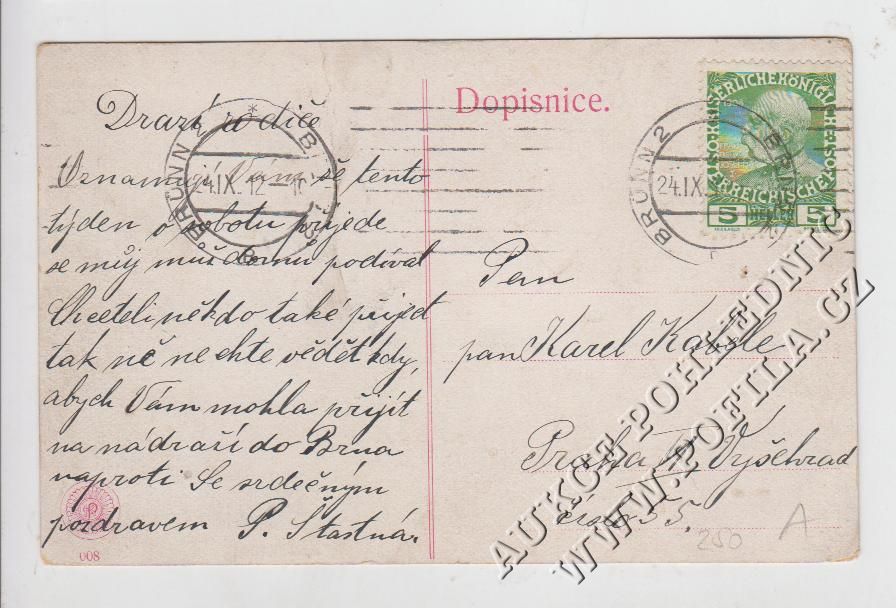 Dopisnice.
Drazí rodiče
Oznamuji Vám že tento
týden v sobotu přijede
se můj muž domů podívat
Chceteli někdo také přijet
tak mě nechte vědět kdy,
abych Vám mohla přijít
na nádraží do Brna
naproti Se srdečným
pozdravem P. Štastná.
008
BRÜNN 2
24.IX.12
BRÜNN 2
24.IX
KAISERLICHEKÖNIGLICHE
ÖSTERREICHISCHE
5 HELLER 5
Pan
pan Karel
Praha Vyšehrad
číslo 55.
250 A
AUKCE POHLEDNIC
WWW.POFILA.CZ